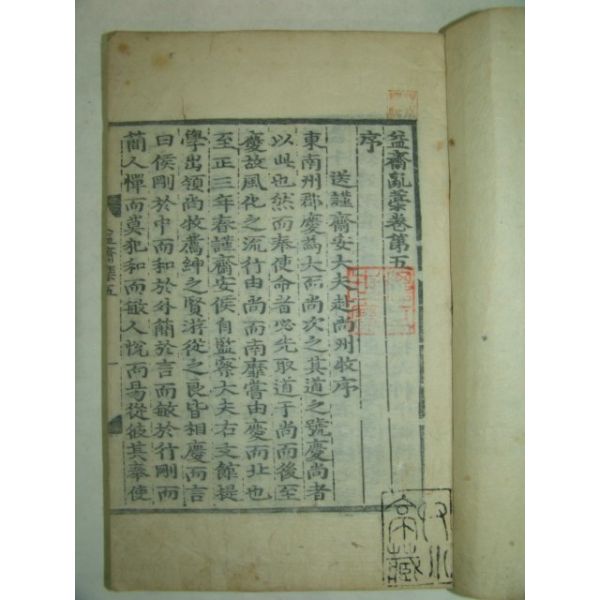 益齋亂藁卷第五
序
送謹齋安大夫赴尚州牧序
東南州郡慶爲大而尚次之其道之號慶尚者
以此也然而奉使命者必先取道于尚而後至
慶故風化之流行由尚而南靡嘗由慶而北也
至正三年春謹齋安侯自監察大夫右文館提
學出領尚牧薦紳之賢游從之良皆相慶而言
曰侯剛於中而和於外簡於言而敏於行剛而
簡人憚而莫犯和而敏人悅而易從彼其奉使
益齋集五